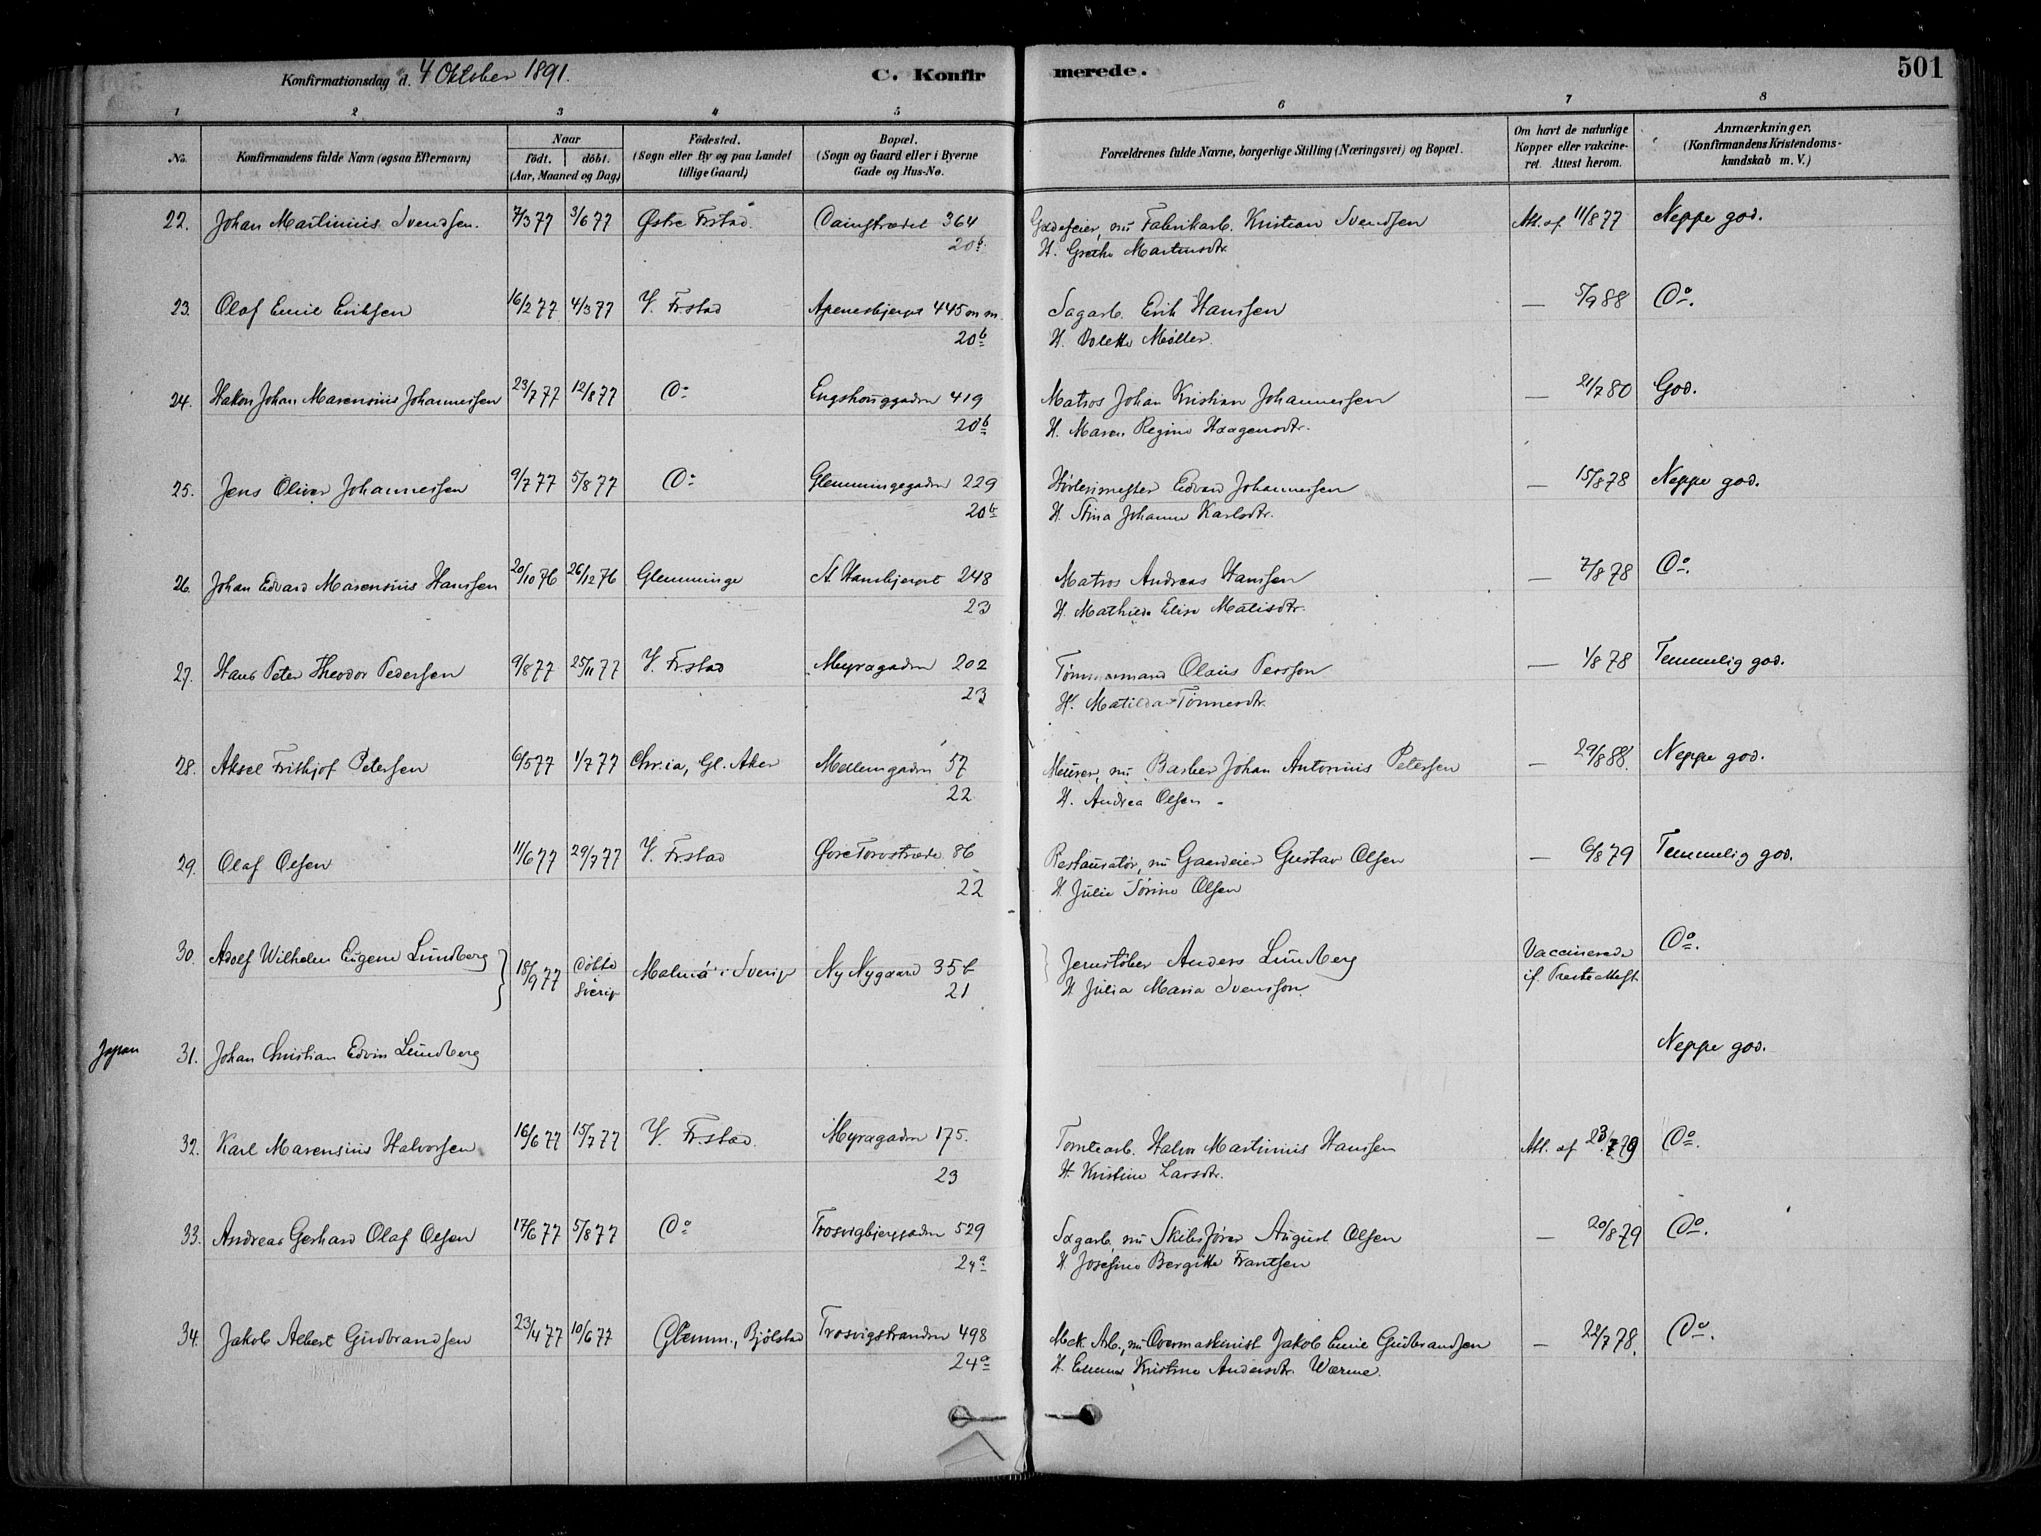 Konfirmationsdag d. 4 Oktober 1891.
C. Konfirmerede.
501
1 2 3 4 5 6 7 8
No.
Konfirmandens fulde Navn (ogsaa Efternavn)
Naar
födt. döbt.
(Aar, Maaned og Dag)
Födested.
(Sogn eller By og paa Landet
tillige Gaard)
Bopæl.
(Sogn og Gaard eller i Byerne
Gade og Hus-No.
Forældrenes fulde Navne, borgerlige Stilling (Næringsvei) og Bopæl.
Om havt de naturlige
Kopper eller vaccine-
ret. Attest herom.
Anmærkninger.
(Konfirmandens Kristendoms-
kundskab m. V.)
22. Johan Martinius Svendsen. 7/3 77 3/6 77 Østre Frstad. 364 Gadefeier, nu Fabrikarb. Kristian Svendsen Att. af 11/8 77 Neppe god.
20b H. Grethe Martinsdtr.
23. Olaf Emil Eriksen 16/2 77 4/3 77 V. Frstad Apenesbjerget 445 m m. Sagarb. Erik Hanssen — 5/9 88 Do.
20b H. Volette Møller.
24. Hakon Johan Marensius Johannessen 23/7 77 12/8 77 Do Enghouggaden 419 Matros Johan Kristian Johannessen — 21/7 80 God.
20b H. Maren Regine Haagensdtr.
25. Jens Oliver Johannessen 9/7 77 5/8 77 Do Glemmingegaden 229 Edvard Johannessen — 15/8 78 Neppe god.
20b H. Stina Johanne Karlsdtr.
26. Johan Edvard Marensius Hanssen 20/10 76 26/12 76 Glemminge St Hansbjerget 248 Matros Andreas Hanssen — 7/8 78 Do.
23 H. Mathilde Elise Matisdtr.
27. Hans Peter Theodor Pedersen 9/8 77 25/11 77 V. Frstad Myragaden 202 Tømmermand Olaus Persson — 1/8 78 Temmelig god.
23 H. Matilda Tønnesdtr.
28. Aksel Frithjof Petersen 6/5 77 1/7 77 Chr.ia, Gl. Aker Mellemgaden 57 Murer, nu Barber Johan Antonius Petersen — 29/8 88. Neppe god.
22 H. Andrea Olsen
29. Olaf Olsen 11/6 77 29/7 77 V. Frstad Øvre Torvstræde 86 Restauratør, nu Gaardeier Gustav Olsen — 6/8 79 Temmelig god.
22 H. Julie Sørine Olsen
30. Adolf Wilhelm Eugene Lundberg 18/9 77 Döbte Sverige Malmö i Sverige Ny Nygaard 35b Jernstøber Anders Lundberg Vaccinerede Do.
21 H. Julia Maria Svensson. if. Presteattest
Japan 31. Johan Christian Edvin Lundberg Neppe god.
32. Karl Marensius Halvorsen 16/6 77 15/7 77 V. Frstad. Myragaden 175. Tomtearb. Halvor Martinius Hanssen Att. af 23/7 79 Do.
23 H. Kristine Larsdtr.
33. Andreas Gerhard Olaf Olsen 17/6 77 5/8 77 Do Trosvigbjerggaden 529 Sagarb, nu Skibsfører August Olsen — 20/8 79 Do.
24a H. Josefine Bergitte Frantsen
34. Jakob Albert Gudbrandsen 23/4 77 10/6 77 Glemm., Bjölstad Trosvigstranden 498 Mek. Arb., nu Overmaskinist Jakob Emil Gudbrandsen — 22/7 78. Do.
24a H. Emma Kristine Andersdtr. Wærme.